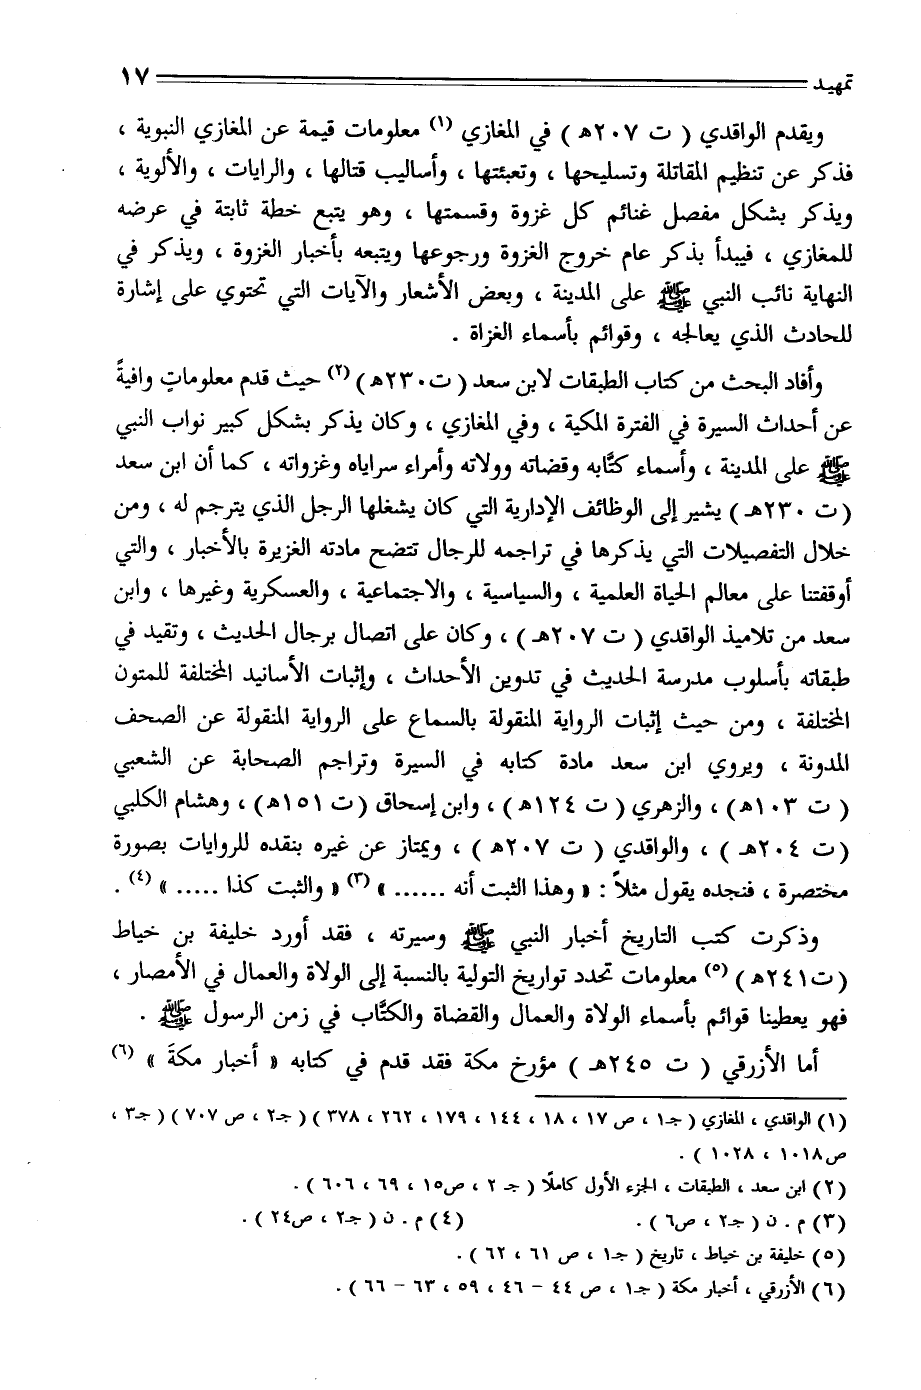 تمهيد ١٧
ويقدم الواقدي ( ت ٢٠٧هـ ) في المغازي (١) معلومات قيمة عن المغازي النبوية ،
فذكر عن تنظيم المقاتلة وتسليحها ، وتعبئتها ، وأساليب قتالها ، والرايات ، والألوية ،
ويذكر بشكل مفصل غنائم كل غزوة وقسمتها ، وهو يتبع خطة ثابتة في عرضه
للمغازي ، فيبدأ بذكر عام خروج الغزوة ورجوعها ويتبعه بأخبار الغزوة ، ويذكر في
النهاية نائب النبي ﷺ على المدينة ، وبعض الأشعار والآيات التي تحتوي على إشارة
للحادث الذي يعالجه ، وقوائم بأسماء الغزاة .
وأفاد البحث من كتاب الطبقات لابن سعد ( ت٢٣٠هـ ) (٢) حيث قدم معلوماتٍ وافيةً
عن أحداث السيرة في الفترة المكية ، وفي المغازي ، وكان يذكر بشكل كبير نواب النبي
ﷺ على المدينة ، وأسماء كتَّابه وقضاته وولاته وأمراء سراياه وغزواته ، كما أن ابن سعد
( ت ٢٣٠هـ ) يشير إلى الوظائف الإدارية التي كان يشغلها الرجل الذي يترجم له ، ومن
خلال التفصيلات التي يذكرها في تراجمه للرجال تتضح مادته الغزيرة بالأخبار ، والتي
أوقفتنا على معالم الحياة العلمية ، والسياسية ، والاجتماعية ، والعسكرية وغيرها ، وابن
سعد من تلاميذ الواقدي ( ت ٢٠٧هـ ) ، وكان على اتصال برجال الحديث ، وتقيد في
طبقاته بأسلوب مدرسة الحديث في تدوين الأحداث ، وإثبات الأسانيد المختلفة للمتون
المختلفة ، ومن حيث إثبات الرواية المنقولة بالسماع على الرواية المنقولة عن الصحف
المدونة ، ويروي ابن سعد مادة كتابه في السيرة وتراجم الصحابة عن الشعبي
( ت ١٠٣هـ) ، والزهري ( ت ١٢٤هـ ) ، وابن إسحاق (ت ١٥١هـ) ، وهشام الكلبي
(ت ٢٠٤هـ ) ، والواقدي ( ت ٢٠٧هـ ) ، ويمتاز عن غيره بنقده للروايات بصورة
مختصرة ، فنجده يقول مثلاً : « وهذا الثبت أنه ...... » (٣) « والثبت كذا ..... » (٤) .
وذكرت كتب التاريخ أخبار النبي ﷺ وسيرته ، فقد أورد خليفة بن خياط
(ت٢٤١هـ ) (٥) معلومات تحدد تواريخ التولية بالنسبة إلى الولاة والعمال في الأمصار ،
فهو يعطينا قوائم بأسماء الولاة والعمال والقضاة والكتَّاب في زمن الرسول ﷺ .
أما الأزرقي ( ت ٢٤٥هـ ) مؤرخ مكة فقد قدم في كتابه « أخبار مكةَ » (٦)
(١) الواقدي ، المغازي ( جـ١ ، ص ١٧ ، ١٨ ، ١٤٤ ، ١٧٩ ، ٢٦٢ ، ٣٧٨ ) ( جـ٢ ، ص ٧٠٧ ) ( جـ٣ ،
ص١٠١٨ ، ١٠٢٨ ) .
(٢) ابن سعد ، الطبقات ، الجزء الأول كاملًا ( جـ ٢ ، ص١٥ ، ٦٩ ، ٦٠٦ ) .
(٣) م . ن ( جـ٢ ، ص٦ ) . (٤) م . ن ( جـ٢ ، ص٢٤ ) .
(٥) خليفة بن خياط ، تاريخ ( جـ١ ، ص ٦١ ، ٦٢ ) .
(٦) الأزرقي ، أخبار مكة ( جـ١ ، ص ٤٤ - ٤٦ ، ٥٩ ، ٦٣ - ٦٦ ) .